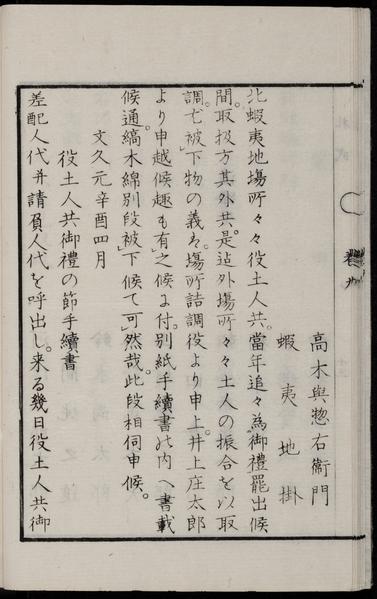 高木與惣右衛門
蝦夷地掛
北蝦夷地塲所々々役土人共。當年追々爲御禮罷出候
間。取扱方其外共。是迠外塲所々々土人の振合を以取
調。尤被下物の義は。塲所詰調役より申上。井上庄太郎
より申越候趣も有之候に付。別紙手續書の内へ書載
候通。縞木綿別段被下候て可然哉。此段相伺申候。
文久元辛酉四月
役土人共御禮の節手續書
差配人代并請負人代を呼出し。来る幾日役土人共御